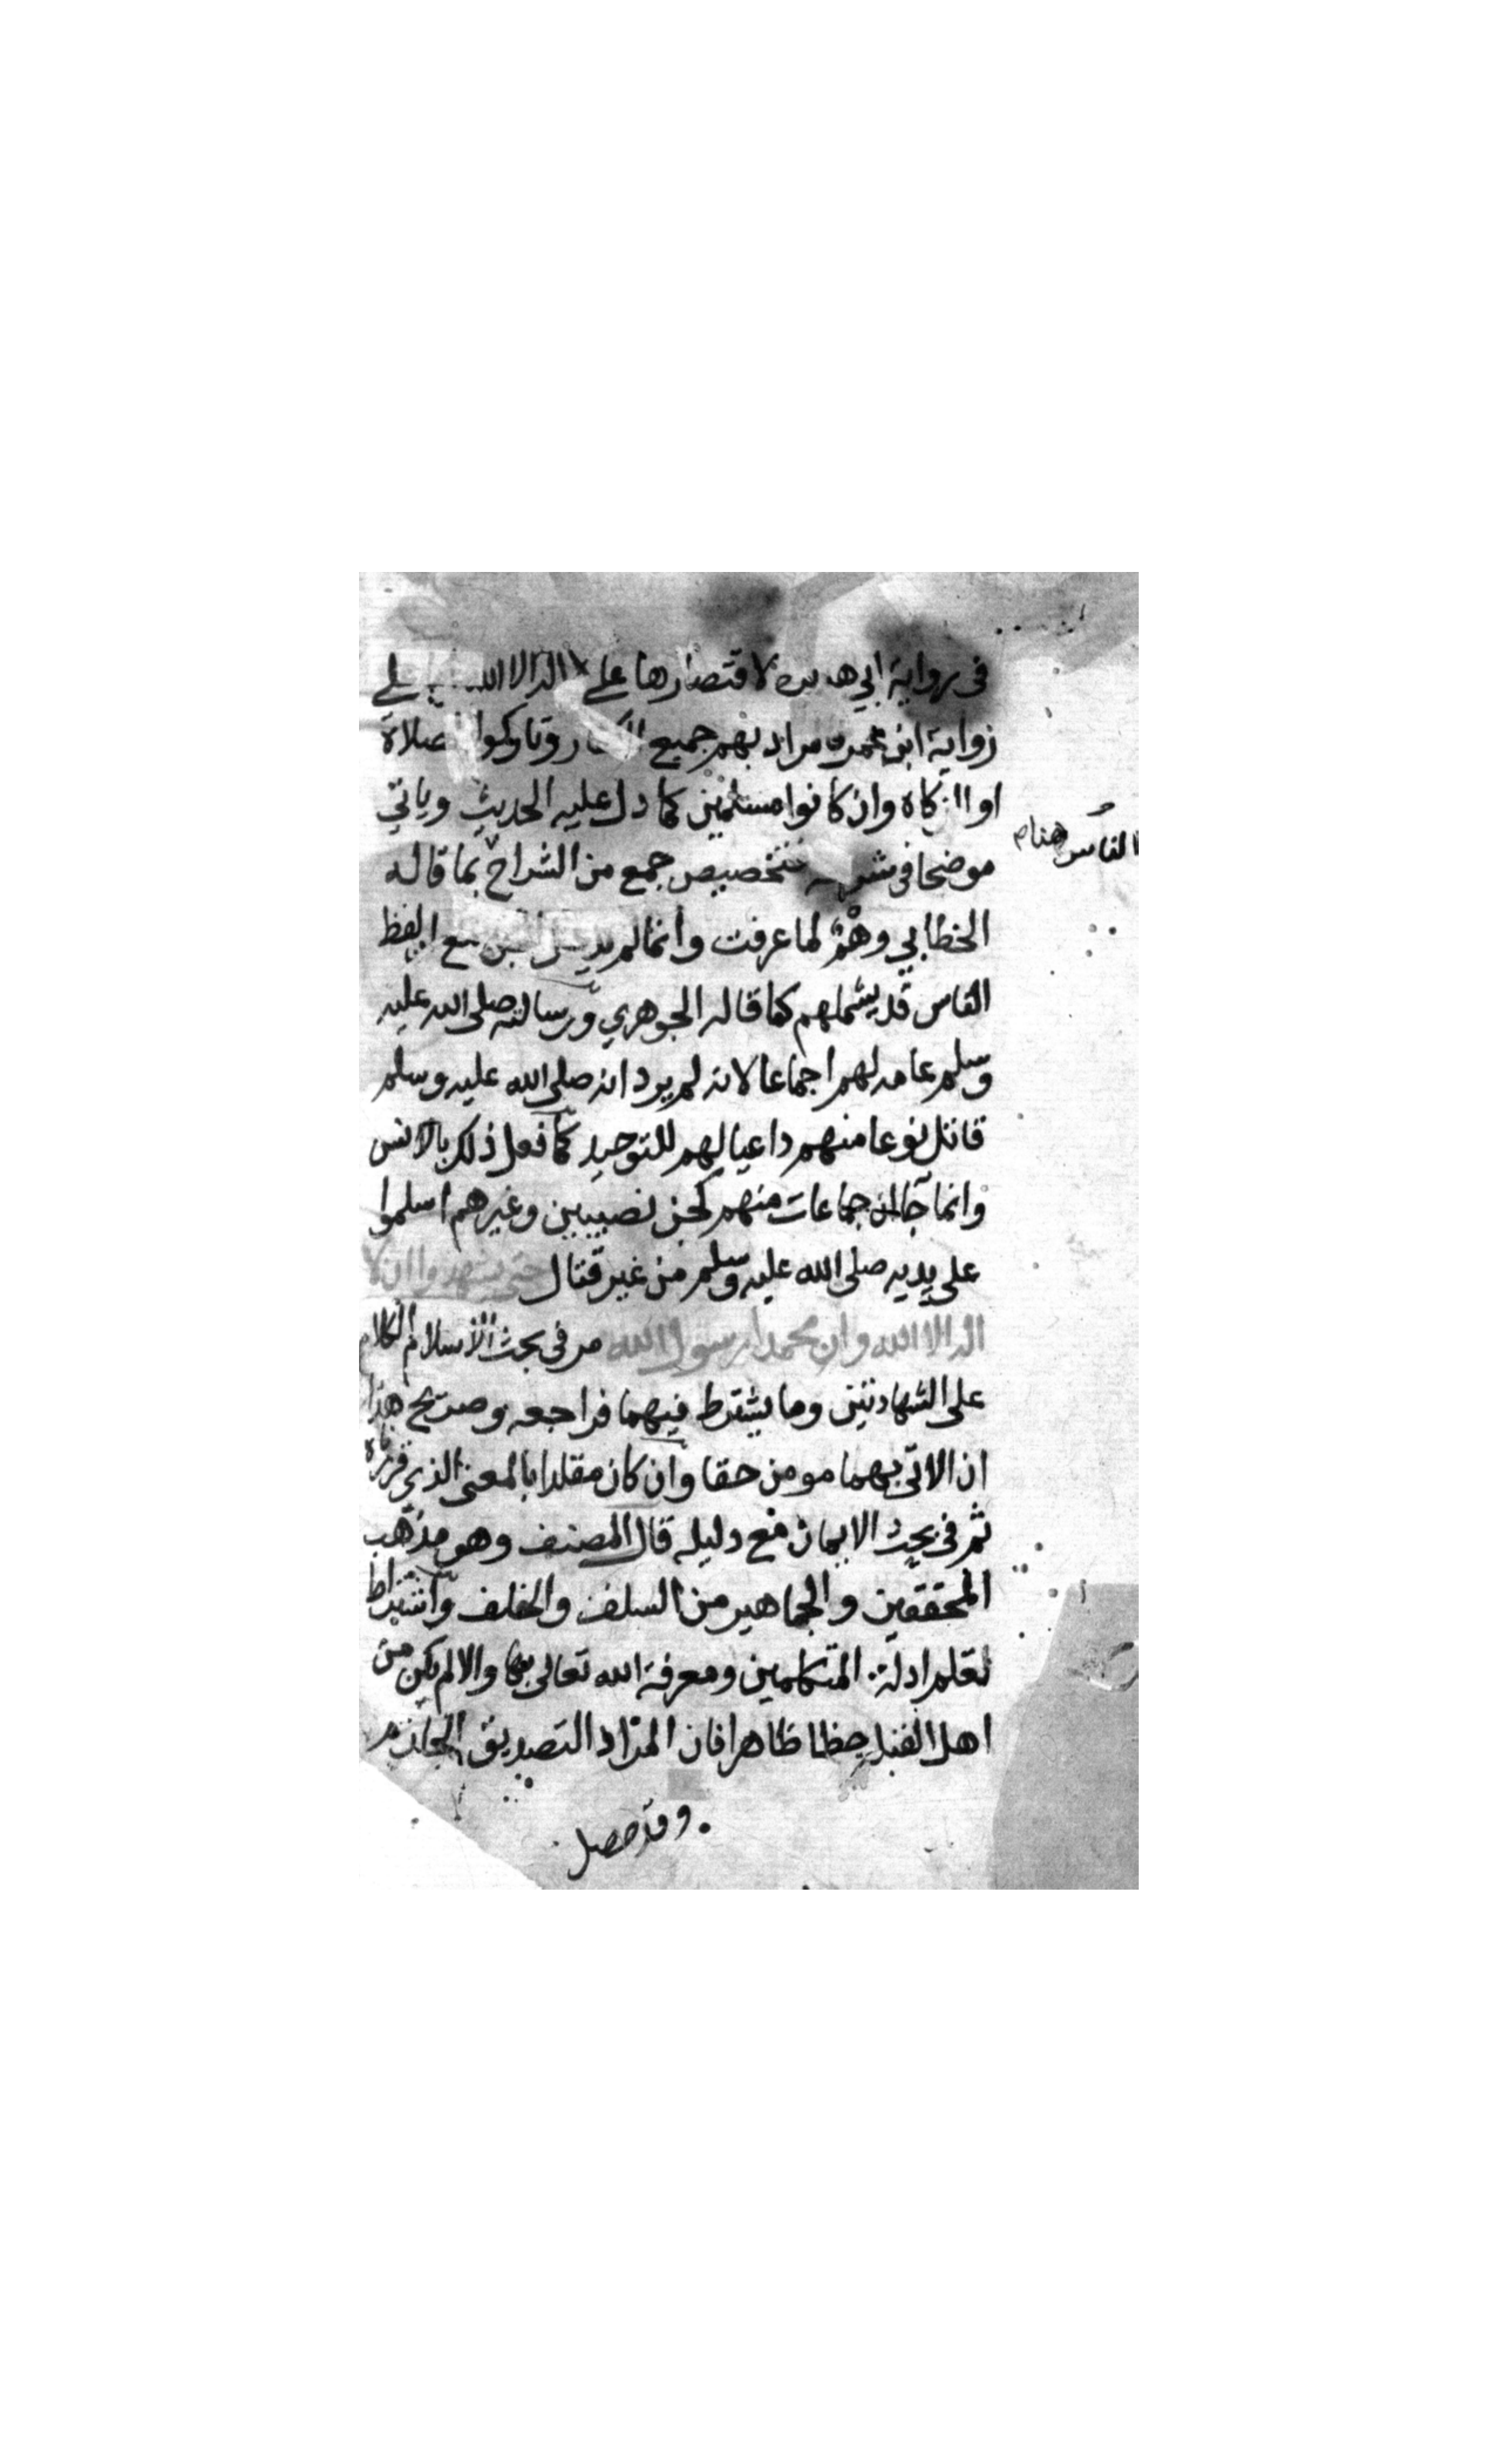 في رواية ابي هريرة لاقتصارها على لا اله الا الله على
رواية ابن عمر مراد بهم جميع الكفار وتاركوا الصلاة
او الزكاة وان كانوا مسلمين كما دل عليه الحديث وياتي
الناس هنا م
موضحا في شرحه فتخصيص جمع من الشراح بما قاله
الخطابي وهم لما عرفت وانما لم يدخل الجن مع ان لفظ
الناس قد يشملهم كما قاله الجوهري ورسالته صلى الله عليه
وسلم عامة لهم اجماعا لانه لم يرد انه صلى الله عليه وسلم
قاتل نوعا منهم داعيا لهم للتوحيد كما فعل ذلك بالانس
وانما جماعات منهم كجن نصيبين وغيرهم اسلموا
على يديه صلى الله عليه وسلم من غير قتال حتى يشهدوا ان لا
اله الا الله وان محمدا رسول الله مر في بحث الاسلام الكلام
على الشهادتين وما يشترط فيهما فراجعه وصريح هذا
ان الاتي بهما مومن حقا وان كان مقلدا بالمعنى الذي قررناه
ثم في بحث الايمان مع دليله قال المصنف وهو مذهب
المحققين والجماهير من السلف والخلف واشتراط
تعلم ادلة المتكلمين ومعرفة الله تعالى بها والا لم يكن من
اهل القبلة خطا ظاهر فان المراد التصديق الجازم
وقد حصل